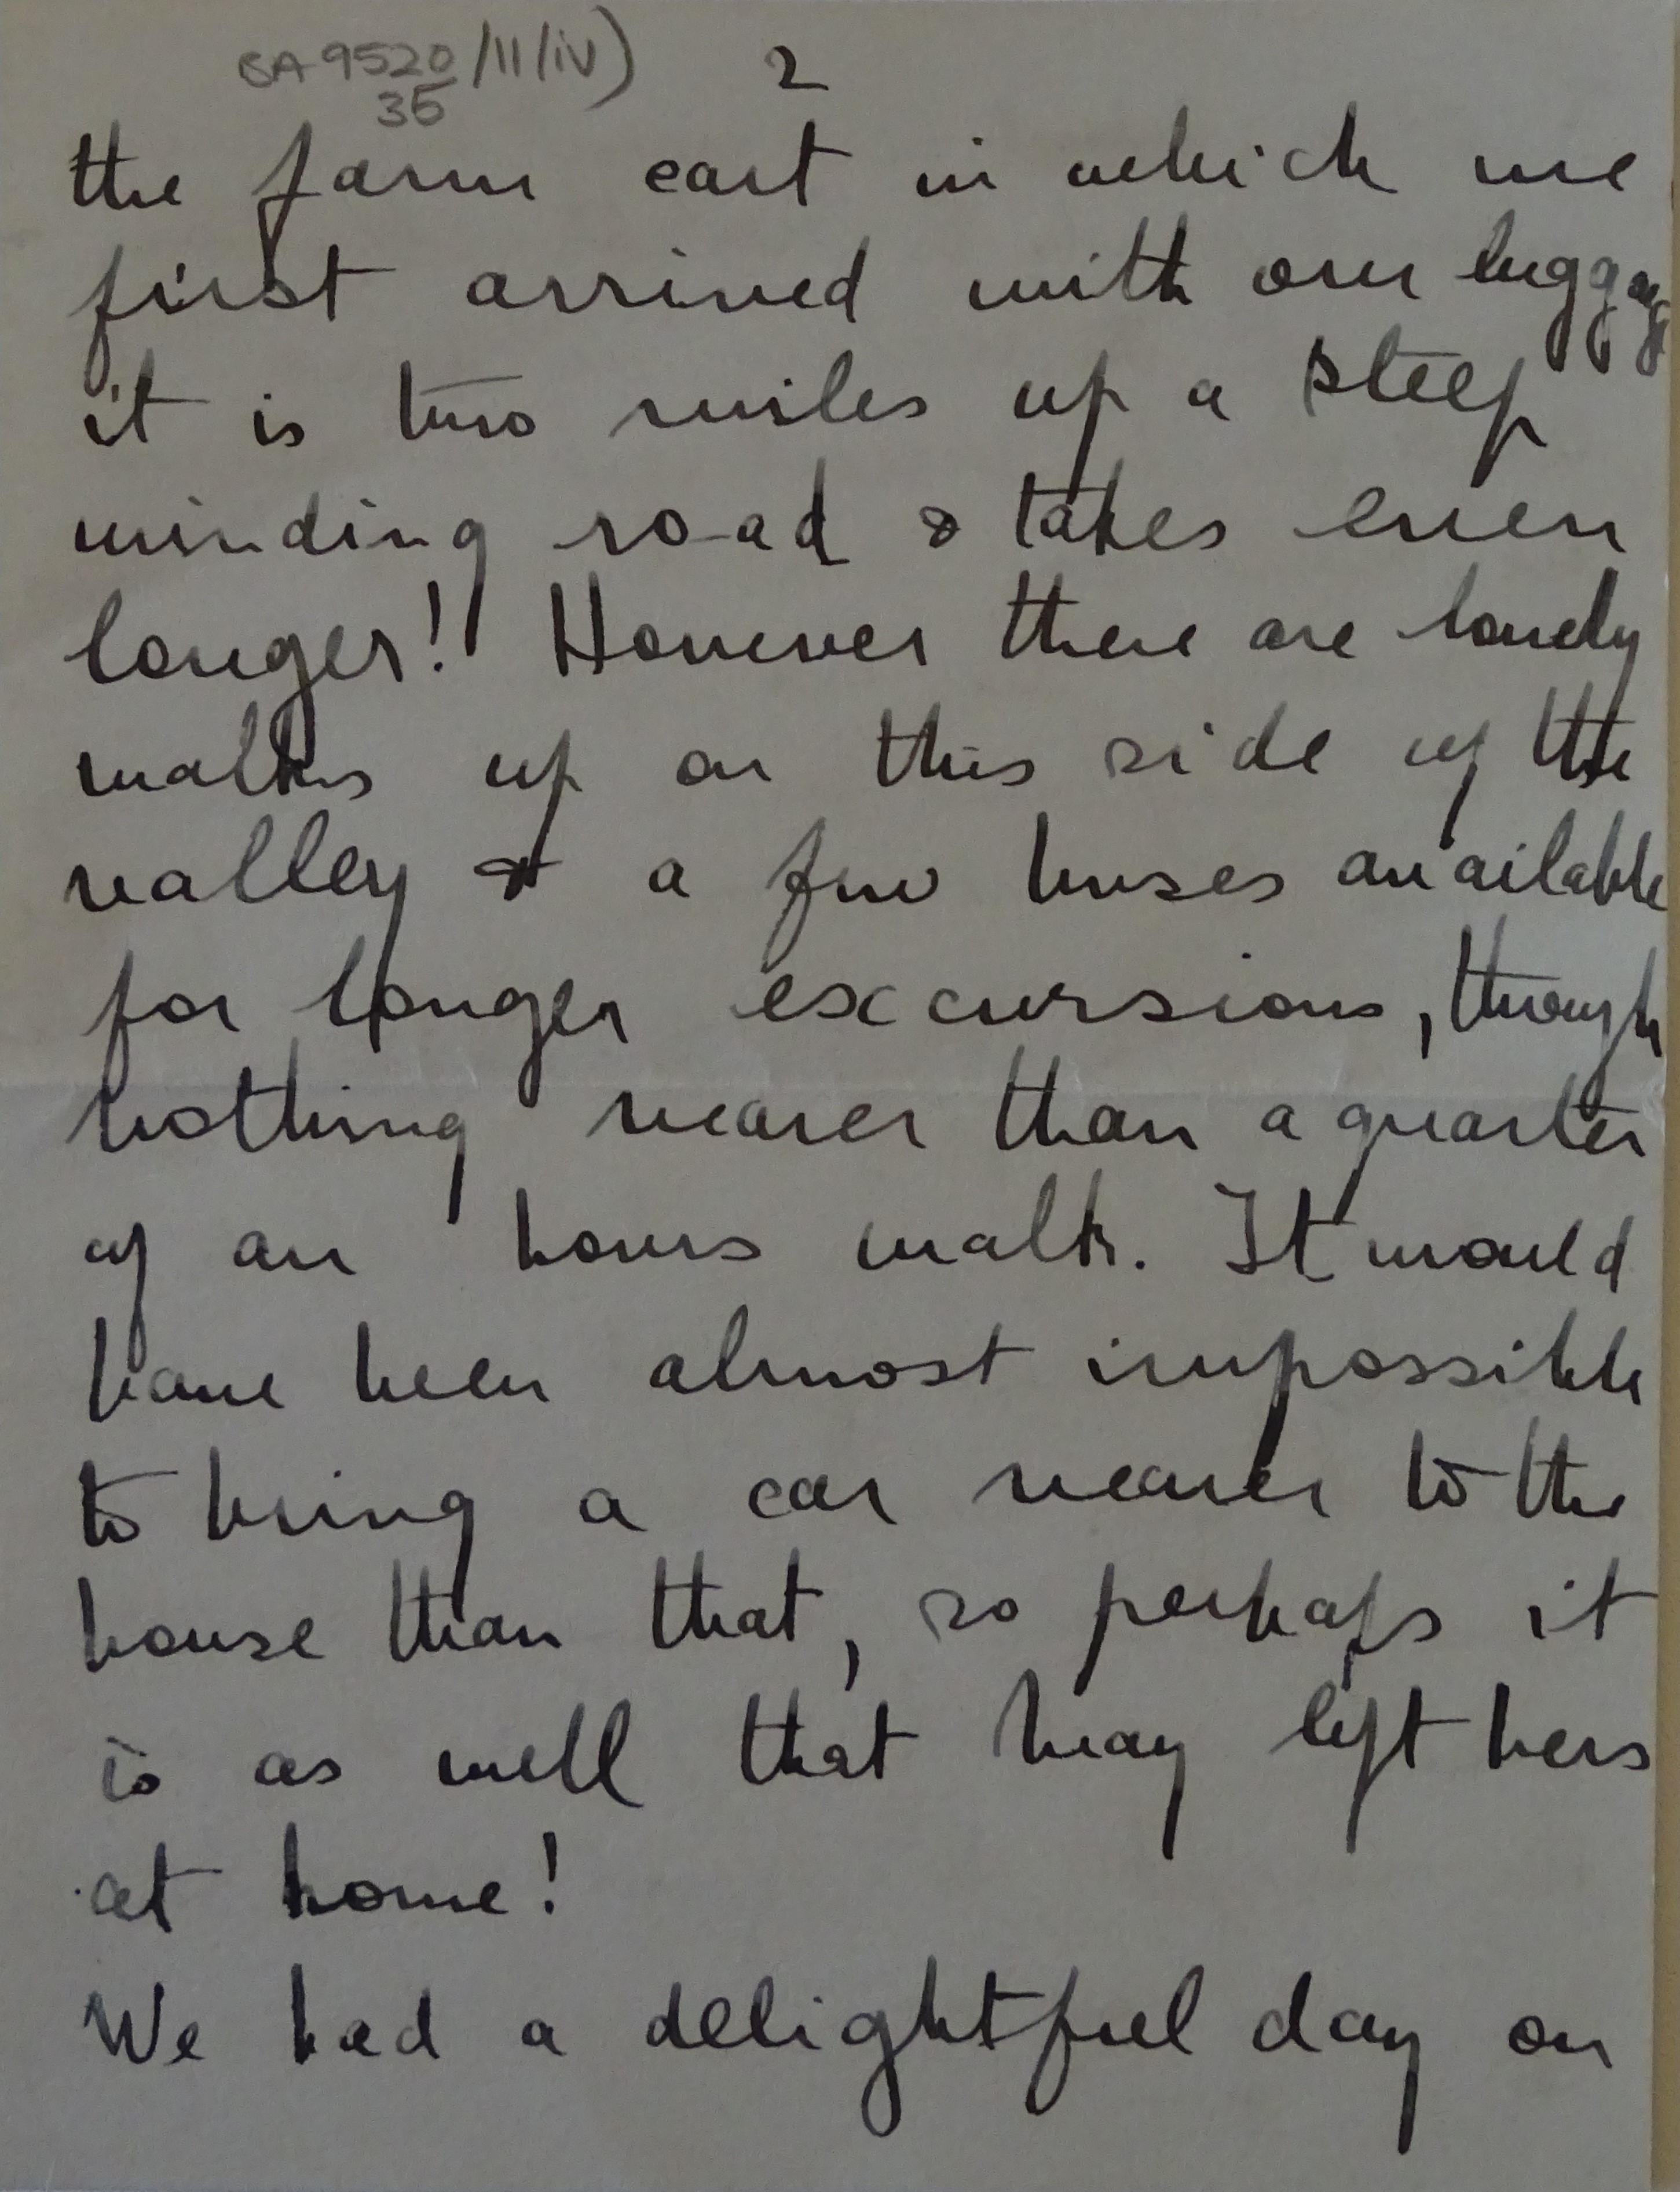 BA 9520/11/iv) 2
35
the farm cart in which we
first arrived with our luggage
it is two miles up a steep
winding road & takes even
longer! However there are lovely
walks up on this side of the
valley & a few buses available
for longer excursions, though
nothing nearer than a quarter
of an hours walk. It would
have been almost impossible
to bring a car nearer to the
house than that, so perhaps it
is as well that May left hers
at home!
We had a delightful day on